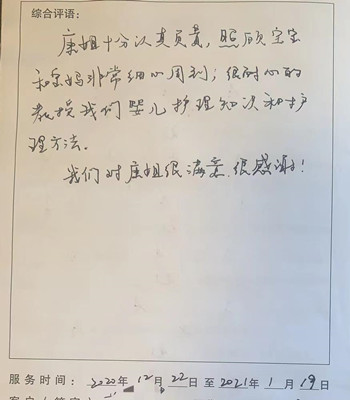 综合评语:
康姐十分认真负责,照顾宝宝
和宝妈非常细心周到;很耐心的
教授我们婴儿护理知识和护
理方法。
我们对康姐很满意、很感谢!
服务时间: 2020年 12月 22日至2021年 1月 19日